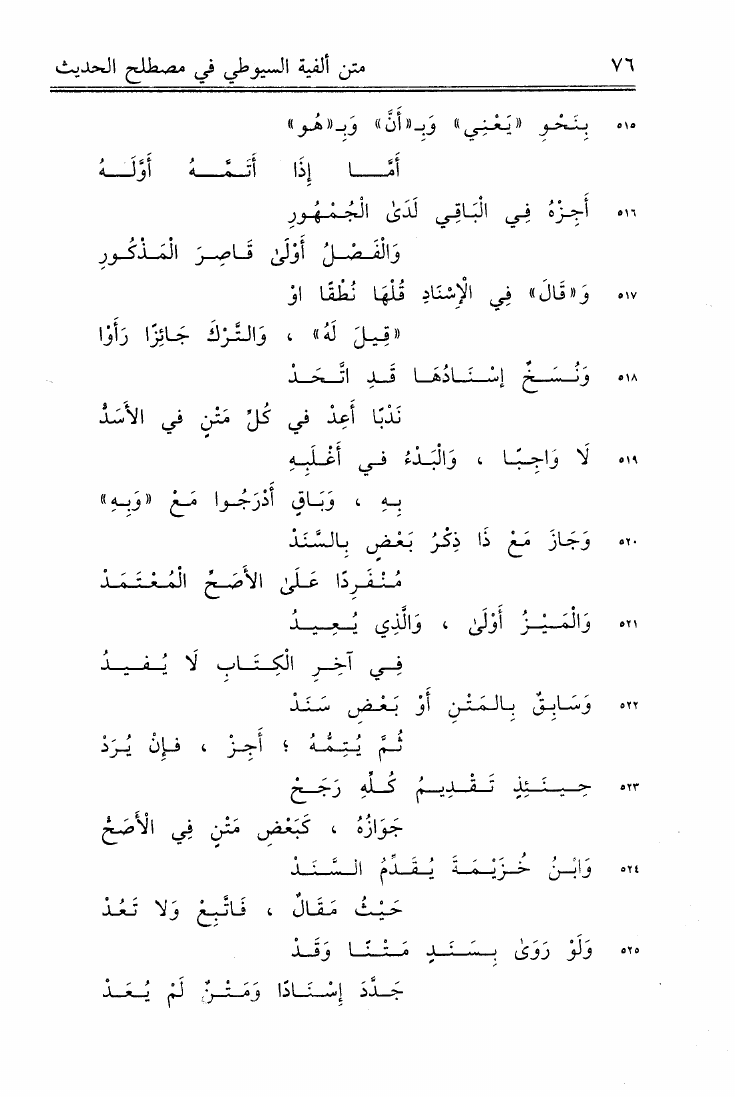 ٧٦ متن ألفية السيوطي في مصطلح الحديث
٥١٥ بِنَحْوِ «يَعْنِي» وَبِـ«أَنَّ» وَبِـ«هُو»
أَمَّا إِذَا أَتَمَّهُ أَوَّلَهُ
٥١٦ أَجِزْهُ فِي الْبَاقِي لَدَىٰ الْجُمْهُورِ
وَالْفَصْلُ أَوْلَىٰ قَاصِرَ الْمَذْكُورِ
٥١٧ وَ«قَالَ» فِي الْإِسْنَادِ قُلْهَا نُطْقًا اوْ
«قِيلَ لَهُ» ، وَالتَّرْكَ جَائِزًا رَأَوْا
٥١٨ وَنُسَخٌ إِسْنَادُهَا قَدِ اتَّحَدْ
نَدْبًا أَعِدْ في كُلِّ مَتْنٍ في الأَسَدّْ
٥١٩ لَا وَاجِبًا ، وَالْبَدْءُ فِي أَغْلَبِهِ
بِهِ ، وَبَاقٍ أَدْرَجُوا مَعْ «وَبِهِ»
٥٢٠ وَجَازَ مَعْ ذَا ذِكْرُ بَعْضٍ بِالسَّنَدْ
مُنْفَرِدًا عَلَىٰ الأَصَحِّ الْمُعْتَمَدْ
٥٢١ وَالْمَيْزُ أَوْلَىٰ ، وَالَّذِي يُعِيدُ
فِي آخِرِ الْكِتَابِ لَا يُفِيدُ
٥٢٢ وَسَابِقٌ بِالمَتْنِ أَوْ بَعْضِ سَنَدْ
ثُمَّ يُتِمُّهُ ؛ أَجِزْ ، فإِنْ يُرَدْ
٥٢٣ حِينَئِذٍ تَقْدِيمُ كُلِّهِ رَجَحْ
جَوَازُهُ ، كَبَعْضِ مَتْنٍ فِي الأَصَحّْ
٥٢٤ وَابْنُ خُزَيْمَةَ يُقَدِّمُ السَّنَدْ
حَيْثُ مَقَالٌ ، فَاتَّبِعْ وَلا تَعُدْ
٥٢٥ وَلَوْ رَوَىٰ بِسَنَدٍ مَتْنًا وَقَدْ
جَدَّدَ إِسْنَادًا وَمَتْنٌ لَمْ يُعَدْ